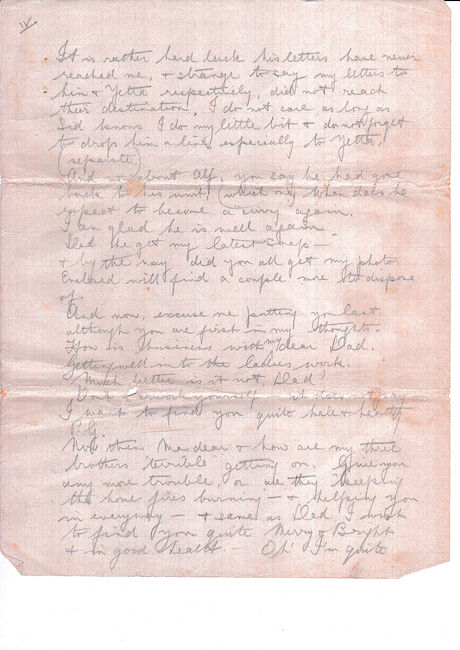 IV
It is rather hard luck his letters have never
reached me, & strange to say my letters to
him & Yetta respectively, did not reach
their destination, I do not care as long as
Sid knows I do my little bit & do not forget
to drop him a line, especially to Yetta,
(separate)
And now about Alf, you say he had gone
back to his unit (which one) When does he
expect to become a civvy again.
I am glad he is well again
Did he get my latest snap—
& by the way did you all get my photo.
Enclosed will find a couple more to dispose
of.
And now, excuse me putting you last
although you are first in my thoughts.
How is business with my dear Dad.
Getting well into the ladies work.
Much better is it not, Dad!
Don't overwork yourself it does not pay
I want to find you quite hale & hearty
P.G.
Now then Ma dear & how are my three
brothers "terrible" getting on. Give you
any more trouble, or are they keeping
the home fires burning — & helping you
in everyway — & same as Dad I wish
to find you quite Merry & Bright
& in good health. — Oh! I'm quite